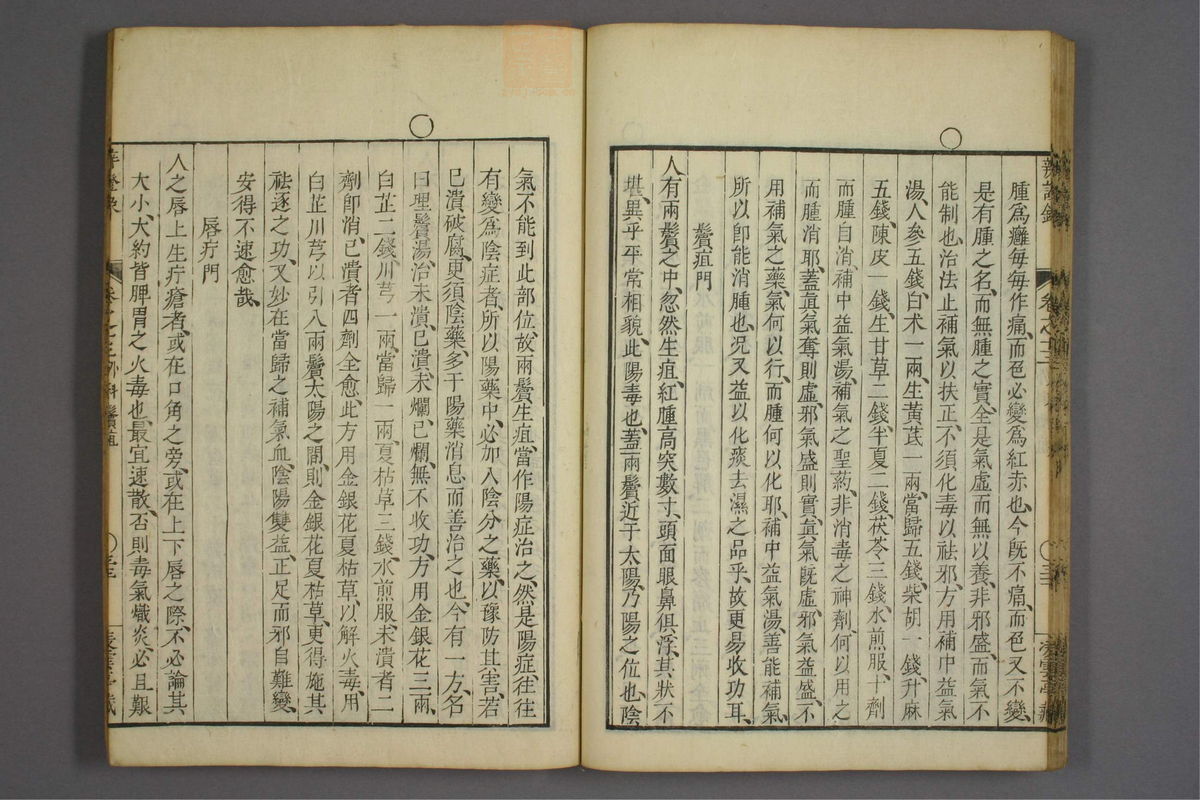 腫爲癰每每作痛、而色必變爲紅赤也、今既不痛、而色又不變、
是有腫之名、而無腫之實、全是氣虛而無以養、非邪盛、而氣不
能制也、治法止補氣以扶正、不須化毒以祛邪、方用補中益氣
湯、人參五錢、白术一兩、生黃茋一兩、當歸五錢、柴胡一錢、升麻
五錢、陳皮一錢、生甘草二錢、半夏二錢、茯苓三錢、水煎服、十劑
而腫自消、補中益氣湯、補氣之聖葯、非消毒之神劑、何以用之
而腫消耶、蓋真氣奪則虛、邪氣盛則實、真氣既虛、邪氣益盛、不
用補氣之藥、氣何以行、而腫何以化耶、補中益氣湯、善能補氣
所以卽能消腫也、况又益以化痰去濕之品乎、故更易收功耳、
鬢疽門
人有兩鬢之中、忽然生疽、紅腫高突數寸、頭面眼鼻俱浮、其狀不
堪、異乎平常相貌、此陽毒也、蓋兩鬢近于太陽、乃陽之位也、陰
氣不能到此部位、故兩鬢生疽、當作陽症治之、然是陽症、往往
有變爲陰症者、所以陽藥中、必加入陰分之藥、以豫防其害、若
已潰破腐、更須陰藥、多于陽藥消息而善治之也、今有一方、名
曰理鬢湯、治未潰、已潰未爛、已爛、無不收功、方用金銀花三兩、
白芷二錢、川芎一兩、當歸一兩、夏枯草三錢、水煎服、未潰者二
劑卽消、已潰者四劑全愈、此方用金銀花夏枯草、以解火毒、用
白芷川芎以引入兩鬢太陽之間、則金銀花夏枯草、更得施其
祛逐之功、又妙在當歸之補氣血、陰陽雙益、正足而邪自難變、
安得不速愈哉、
唇疔門
人之唇上生疔瘡者、或在口角之旁、或在上下唇之際、不必論其
大小、大約皆脾胃之火毒也、最宜速散、否則毒氣熾炎、必且艱